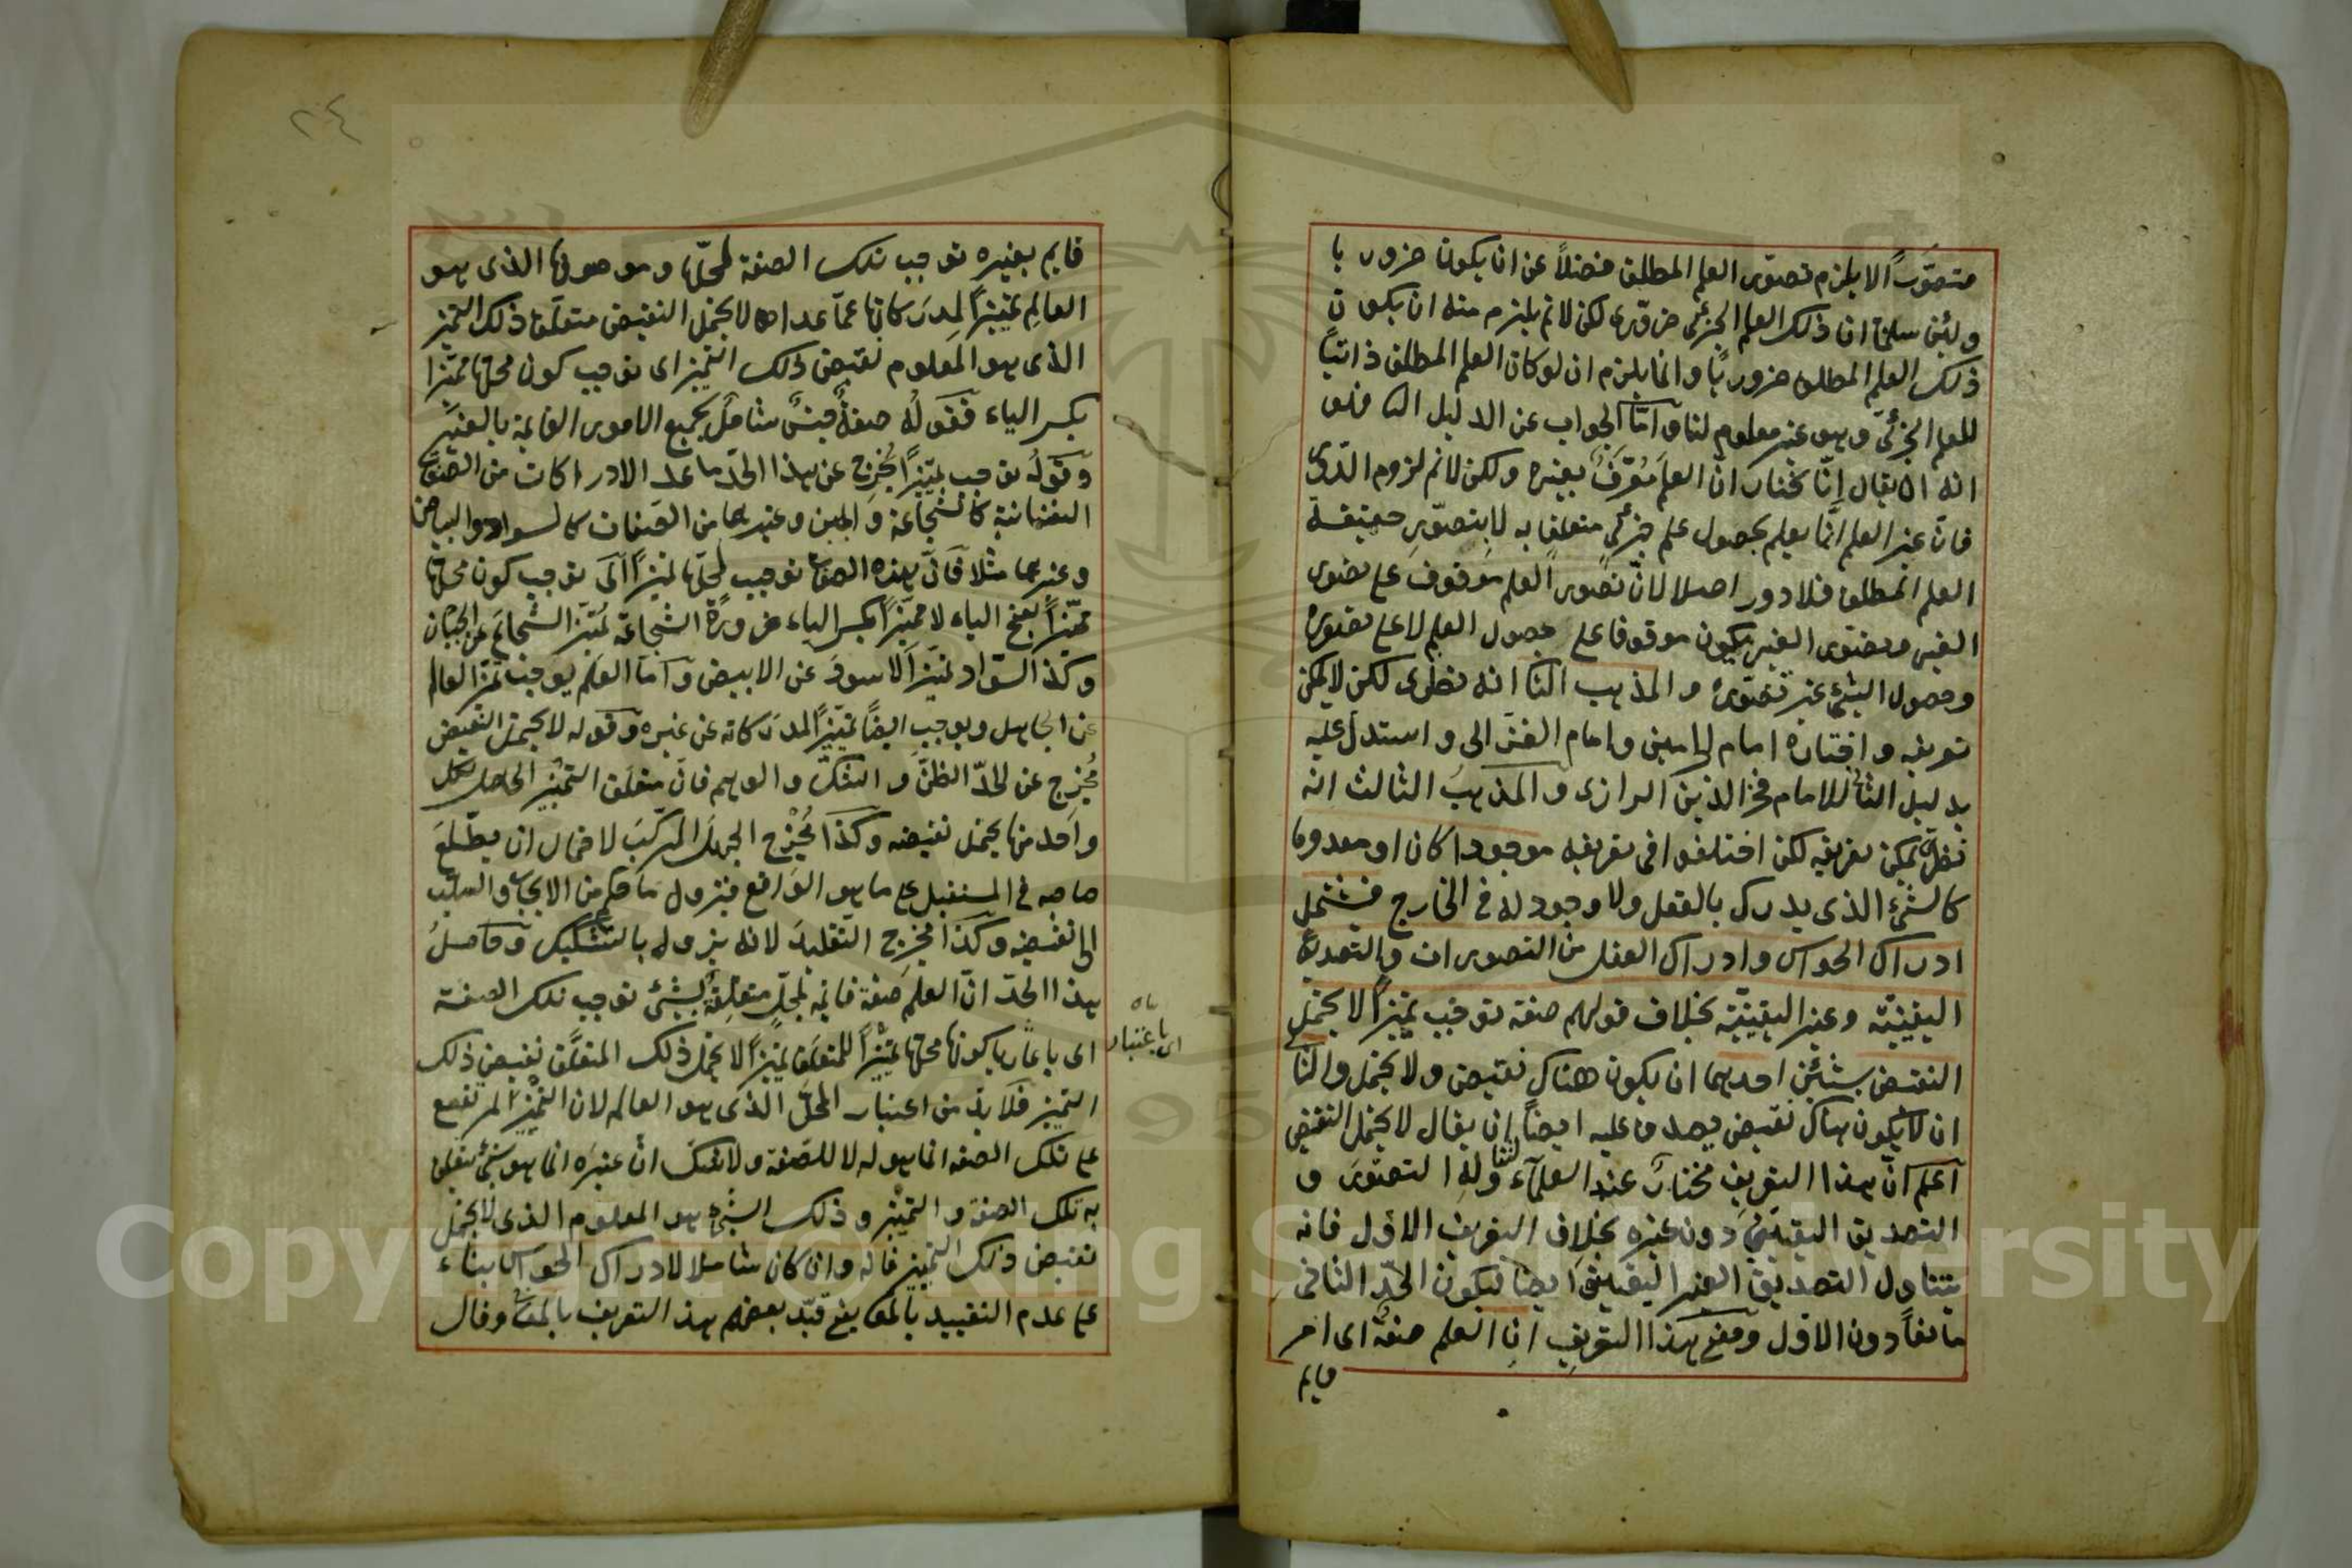 متصوّرًا لا يلزم تصوّر العلم المطلق فضلاً عن ان يكون ضرور يا
ولئن سلمنا ان ذلك العلم الجزئى ضرورى لكن لا نم يلزم منه ان يكون
ذلك العلم المطلق ضروريًا وانما يلزم ان لو كان العلم المطلق ذاتيًا
للعلم الجزئى وهو غير معلوم لنا وامّا الجواب عن الدليل الثا فهو
انه ان يقال إنّا نختار انّ العلم مُعَرَّفٌ بغيره ولكن لا نم لزوم الدّور
فانّ غير العلم انّما يعلم بحصول علم جزئى متعلق به لا بتصوّر حقيقة
العلم المطلق فلا دور اصلا لانّ تصور العلم موقوف على تصور
الغير وتصور الغير يكون موقوفا على حصول العلم لا على تصوره
وحصول الشئ غير تصوّره والمذهب الثا انه نظرى لكن لا يمكن
تعريفه واختاره امام الحرمين وامام الغزالى واستدل عليه
بدليل الثا للامام فخر الدين الرازى والمذهب الثالث انه
نظرى يمكن تعريفه لكن اختلفوا فى تعريفه موجودا كان او معدوما
كالشئ الذى يدرك بالعقل ولا وجود له فى الخارج فيشتمل
ادراك الحواس وادراك العقل من التصورات والتصديقا
اليقينيّة وغير اليقينيّة بخلاف قولهم صفة توجب تميزًا لا يحتمل
النقيض بشيئين احدهما ان يكون هناك نقيض ولا يحتمل والثا
ان لا يكون هناك نقيض يصدق عليه ايضا ان يقال لا يحتمل النقيض
اعلم انّ هذا التعريف مختار عند العلمآء لتناوله التصوّر و
التصديق اليقينى دون غيره بخلاف التعريف الاول فانه
يتناول التصديق الغير اليقينى ايضا ليكون الحدّ الثانى
مانعًا دون الاول ومعنى هذا التعريف ان العلم صفة اى امر
قايم
قايم بغيره توجب تلك الصفة لمحلّها وموصوفها الذى هو
العالِم تمييزًا لمدركاتها عمّا عداها لا يحتمل النقيض متعلّق ذلك التميز
الذى هو المعلوم نقيض ذلك التميز اى توجب كون محلها مميّزا
بكسر الياء فقوله صفةٌ جنسٌ شاملٌ لجميع الامور القايمة بالغير
وقوله توجب تميّزًا يُخرِج عن هذا الحدّ ما عدا الادراكات من الصفات
النفسانية كالشجاعة والجبن وغيرهما من الصفات كالسواد والبياض
وغيرهما مثلا فانّ هذه الصفات توجب لمحلّها تميزًا اى توجب كون محلها
مميّزًا بفتح الياء لا مميّزًا بكسر الياء ضرورة الشجاعة تميّز الشجاع عن الجبان
وكذا السّواد تميّز الاسود عن الابيض وامّا العلم يوجب تميّز العالم
عن الجاهل ويوجب ايضًا تميّز المدركاته عن غيره وقوله لا يحتمل النقيض
يُخرِج عن الحدّ الظنّ والشكّ والوهم فانّ متعلق التميّز الحاصل بكل
واحد منها يحتمل نقيضه وكذا يُخرِج الجهل المركّب لاحتمال ان يطّلع
صاحبه فى المستقبل على ما هو الواقع فيزول ما حكم من الايجاب والسلب
الى نقيضه وكذا يخرج التقليد لانه يزول بالتشكيك وحاصل
هذا الحدّ انّ العلم صفة قايمة بمحلّ متعلّقة بشئ توجب تلك الصفة
اى باعتبارها كون محلها تميّزًا للمتعلق تميزًا لا يحتمل ذلك المتعلّق نقيض ذلك
اى باعتبار
التميز فلا بدّ من اعتبار المحلّ الذى هو العالم لان التميّز المرتفع
على تلك الصفة انما هو له لا للصّفة ولا شك انّ غيره انما هو شئ يتعلق
به تلك الصفة والتميّز وذلك الشئ هو المعلوم الذى لا يحتمل
نقيض ذلك التميز فانه وان كان شاملا لادراك الحواس بناء
على عدم التقييد بالمعانى قيّد بعضهم هذ التعريف بالمعا وقال
٢٤
Copyright © King Saud University